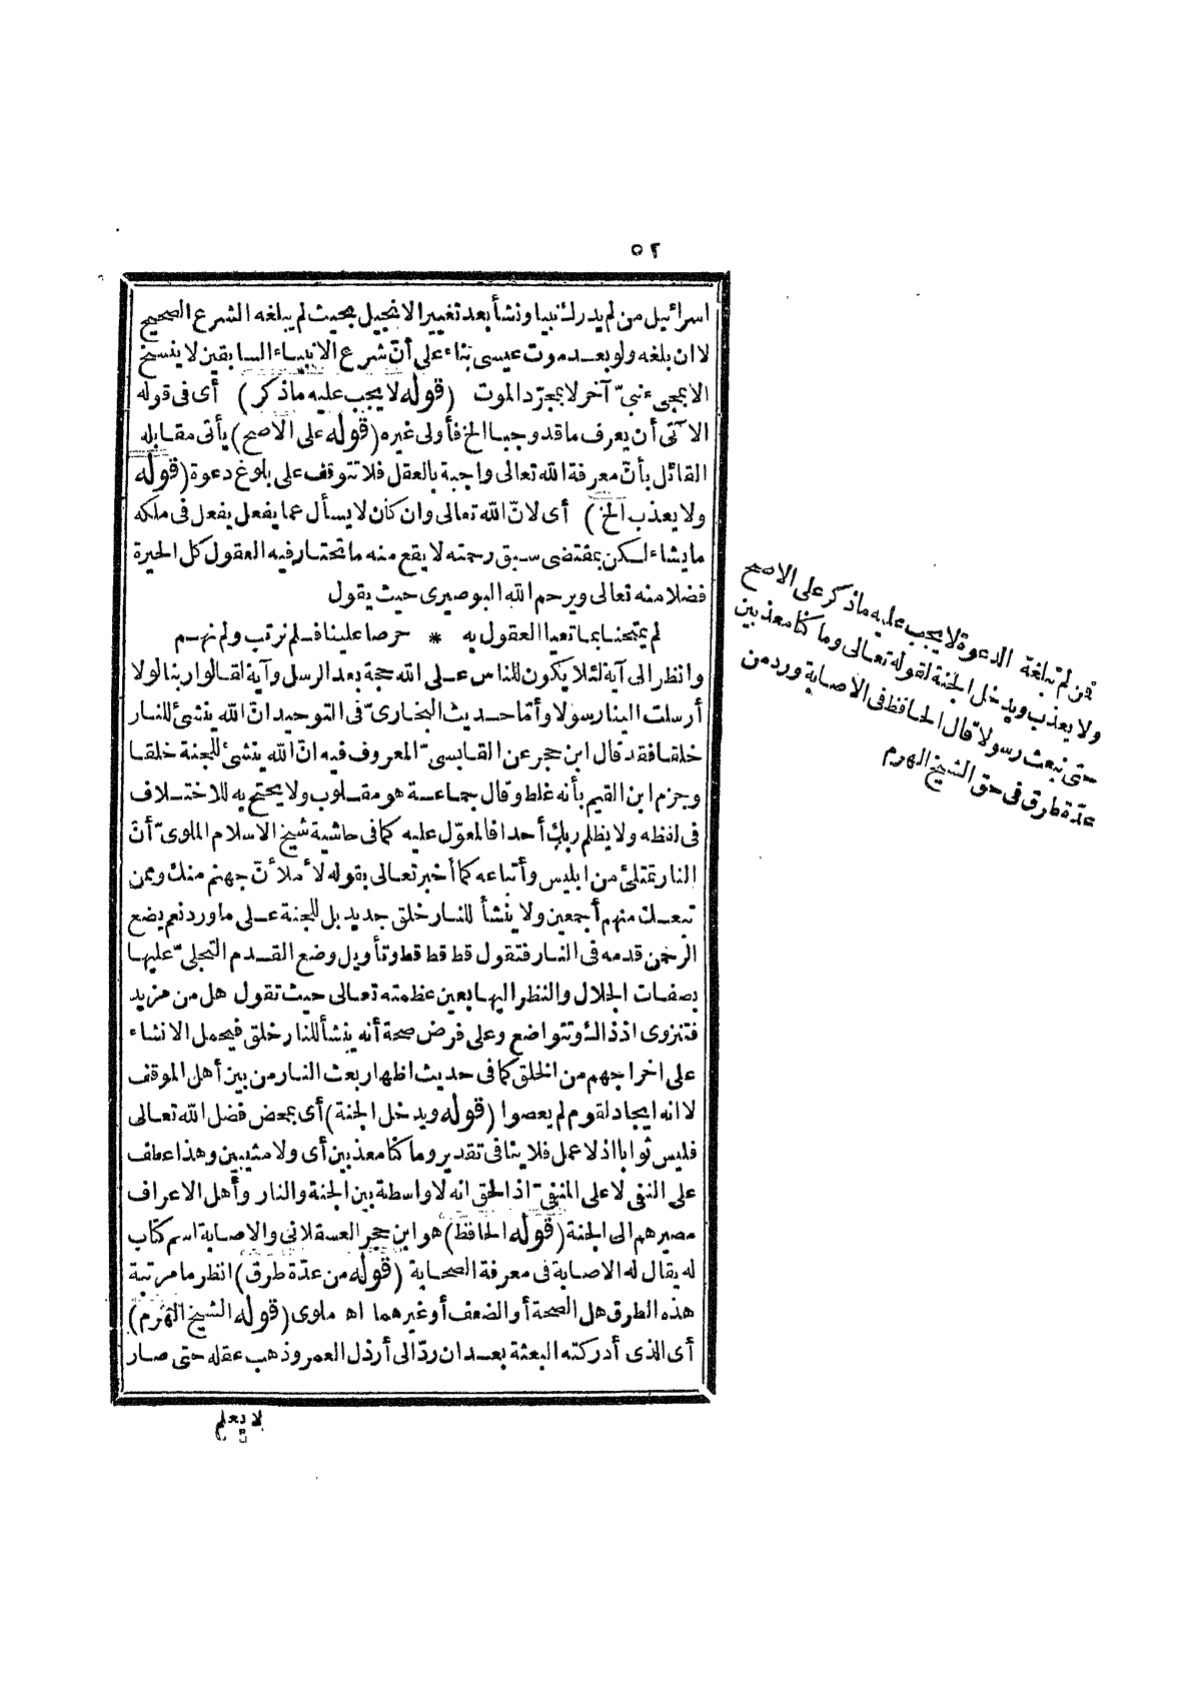 ٥٢
اسرائيل من لم يدرك نبيا ونشأ بعد تغيير الانجيل بحيث لم يبلغه الشرع الصحيح
لا ان بلغه ولو بعد موت عيسى بناء على أنّ شرع الانبياء السابقين لا ينسخ
الا بمجىء نبىّ آخر لا بمجرّد الموت (قوله لا يجب عليه ماذكر) أى فى قوله
الآتى أن يعرف ما قد وجبا الخ فأولى غيره (قوله على الاصح) يأتى مقابله
القائل بأنّ معرفة الله تعالى واجبة بالعقل فلا تتوقف على بلوغ دعوة (قوله
ولا يعذب الخ) أى لانّ الله تعالى وان كان لا يسأل عما يفعل يفعل فى ملكه
مايشاء لكن بمقتضى سبق رحمته لا يقع منه ما تحتار فيه العقول كل الحيرة
فضلا منه تعالى ويرحم الله البوصيرى حيث يقول
لم يمتحنا بما تعيا العقول به * حرصا علينا فلم نرتب ولم نهم
وانظر الى آية لئلا يكون للناس على الله حجة بعد الرسل وآية لقالوا ربنا لولا
أرسلت الينا رسولا وأمّا حديث البخارىّ فى التوحيد انّ الله ينشئ للنار
خلقا فقد قال ابن حجر عن القابسىّ المعروف فيه انّ الله ينشئ للجنة خلقا
وجزم ابن القيم بأنه غلط وقال جماعة هو مقلوب ولا يحتج به للاختلاف
فى لفظه ولا يظلم ربك أحدا فالمعوّل عليه كما فى حاشية شيخ الاسلام الملوىّ أنّ
النار تمتلئ من ابليس وأتباعه كما أخبر تعالى بقوله لأملأنّ جهنم منك وممن
تبعك منهم أجمعين ولا ينشأ للنار خلق جديد بل للجنة على ما ورد نعم يضع
الرحمن قدمه فى النار فتقول قط قط قط وتأويل وضع القدم التجلىّ عليها
بصفات الجلال والنظر اليها بعين عظمته تعالى حيث تقول هل من مزيد
فتنزوى اذ ذاك وتتواضع وعلى فرض صحة أنه ينشأ للنار خلق فيحمل الانشاء
على اخراجهم من الخلق كما فى حديث اظهار بعث النار من بين أهل الموقف
لا انه ايجاد لقوم لم يعصوا (قوله ويدخل الجنة) أى بمحض فضل الله تعالى
فليس ثوابا اذ لا عمل فلا ينافى تقدير وما كنا معذبين أى ولا مثيبين وهذا عطف
على النفى لا على المنفىّ اذ الحق انه لا واسطة بين الجنة والنار وأهل الاعراف
مصيرهم الى الجنة (قوله الحافظ) هو ابن حجر العسقلانى والاصابة اسم كتاب
له يقال له الاصابة فى معرفة الصحابة (قوله من عدّة طرق) انظر ما مرتبة
هذه الطرق هل الصحة أو الضعف أو غيرهما اه ملوى (قوله الشيخ الهرم)
أى الذى أدركته البعثة بعد ان ردّ الى أرذل العمر وذهب عقله حتى صار
لا يعلم
فمن لم تبلغه الدعوة لا يجب عليه ماذكر على الاصح
ولا يعذب ويدخل الجنة لقوله تعالى وما كنا معذبين
حتى نبعث رسولا قال الحافظ فى الاصابة ورد من
عدّة طرق فى حق الشيخ الهرم